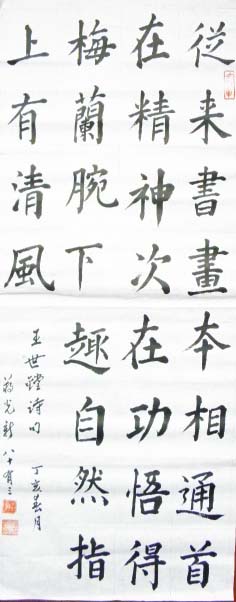 從来書畫本相通首
在精神次在功悟得
梅蘭腕下趣自然指
上有清風
王世鏜诗句 丁亥春月
八十有三